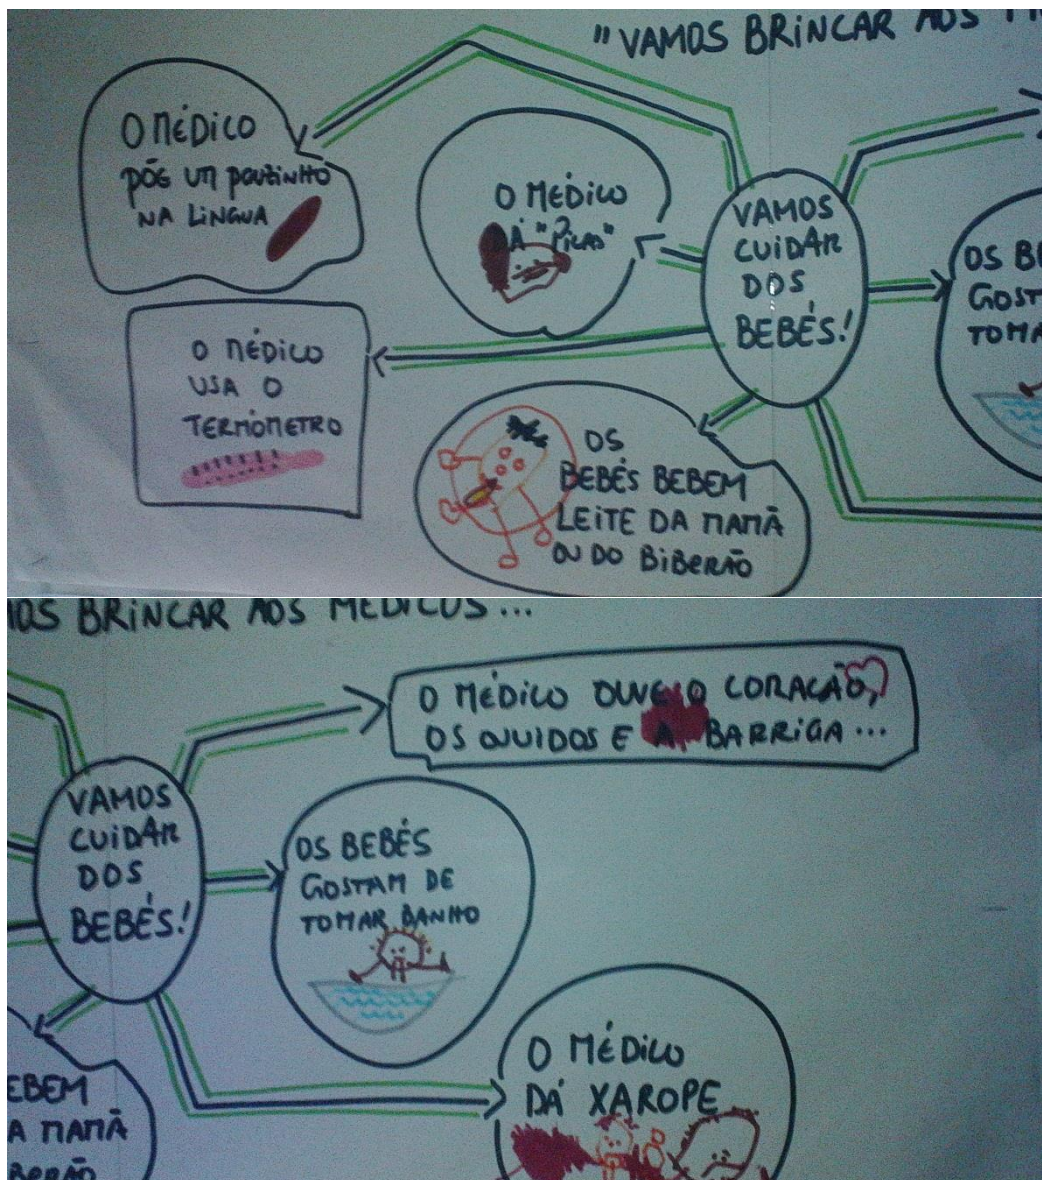 "VAMOS BRINCAR AOS
O MÉDICO
PÕE UM PAUZINHO
NA LINGUA
O MÉDICO
DÁ "PICAS"
VAMOS
CUIDAR
DOS
BEBÉS!
OS
GOST
TOMA
O MÉDICO
USA O
TERMÓMETRO
OS
BEBÉS BEBEM
LEITE DA MAMÃ
OU DO BIBERÃO
BRINCAR AOS MÉDICOS...
O MÉDICO OUVE O CORAÇÃO,
OS OUVIDOS E A BARRIGA...
VAMOS
CUIDAR
DOS
BEBÉS!
OS BEBÉS
GOSTAM DE
TOMAR BANHO
O MÉDICO
DÁ XAROPE
EBEM
A MAMÃ
BERÃO